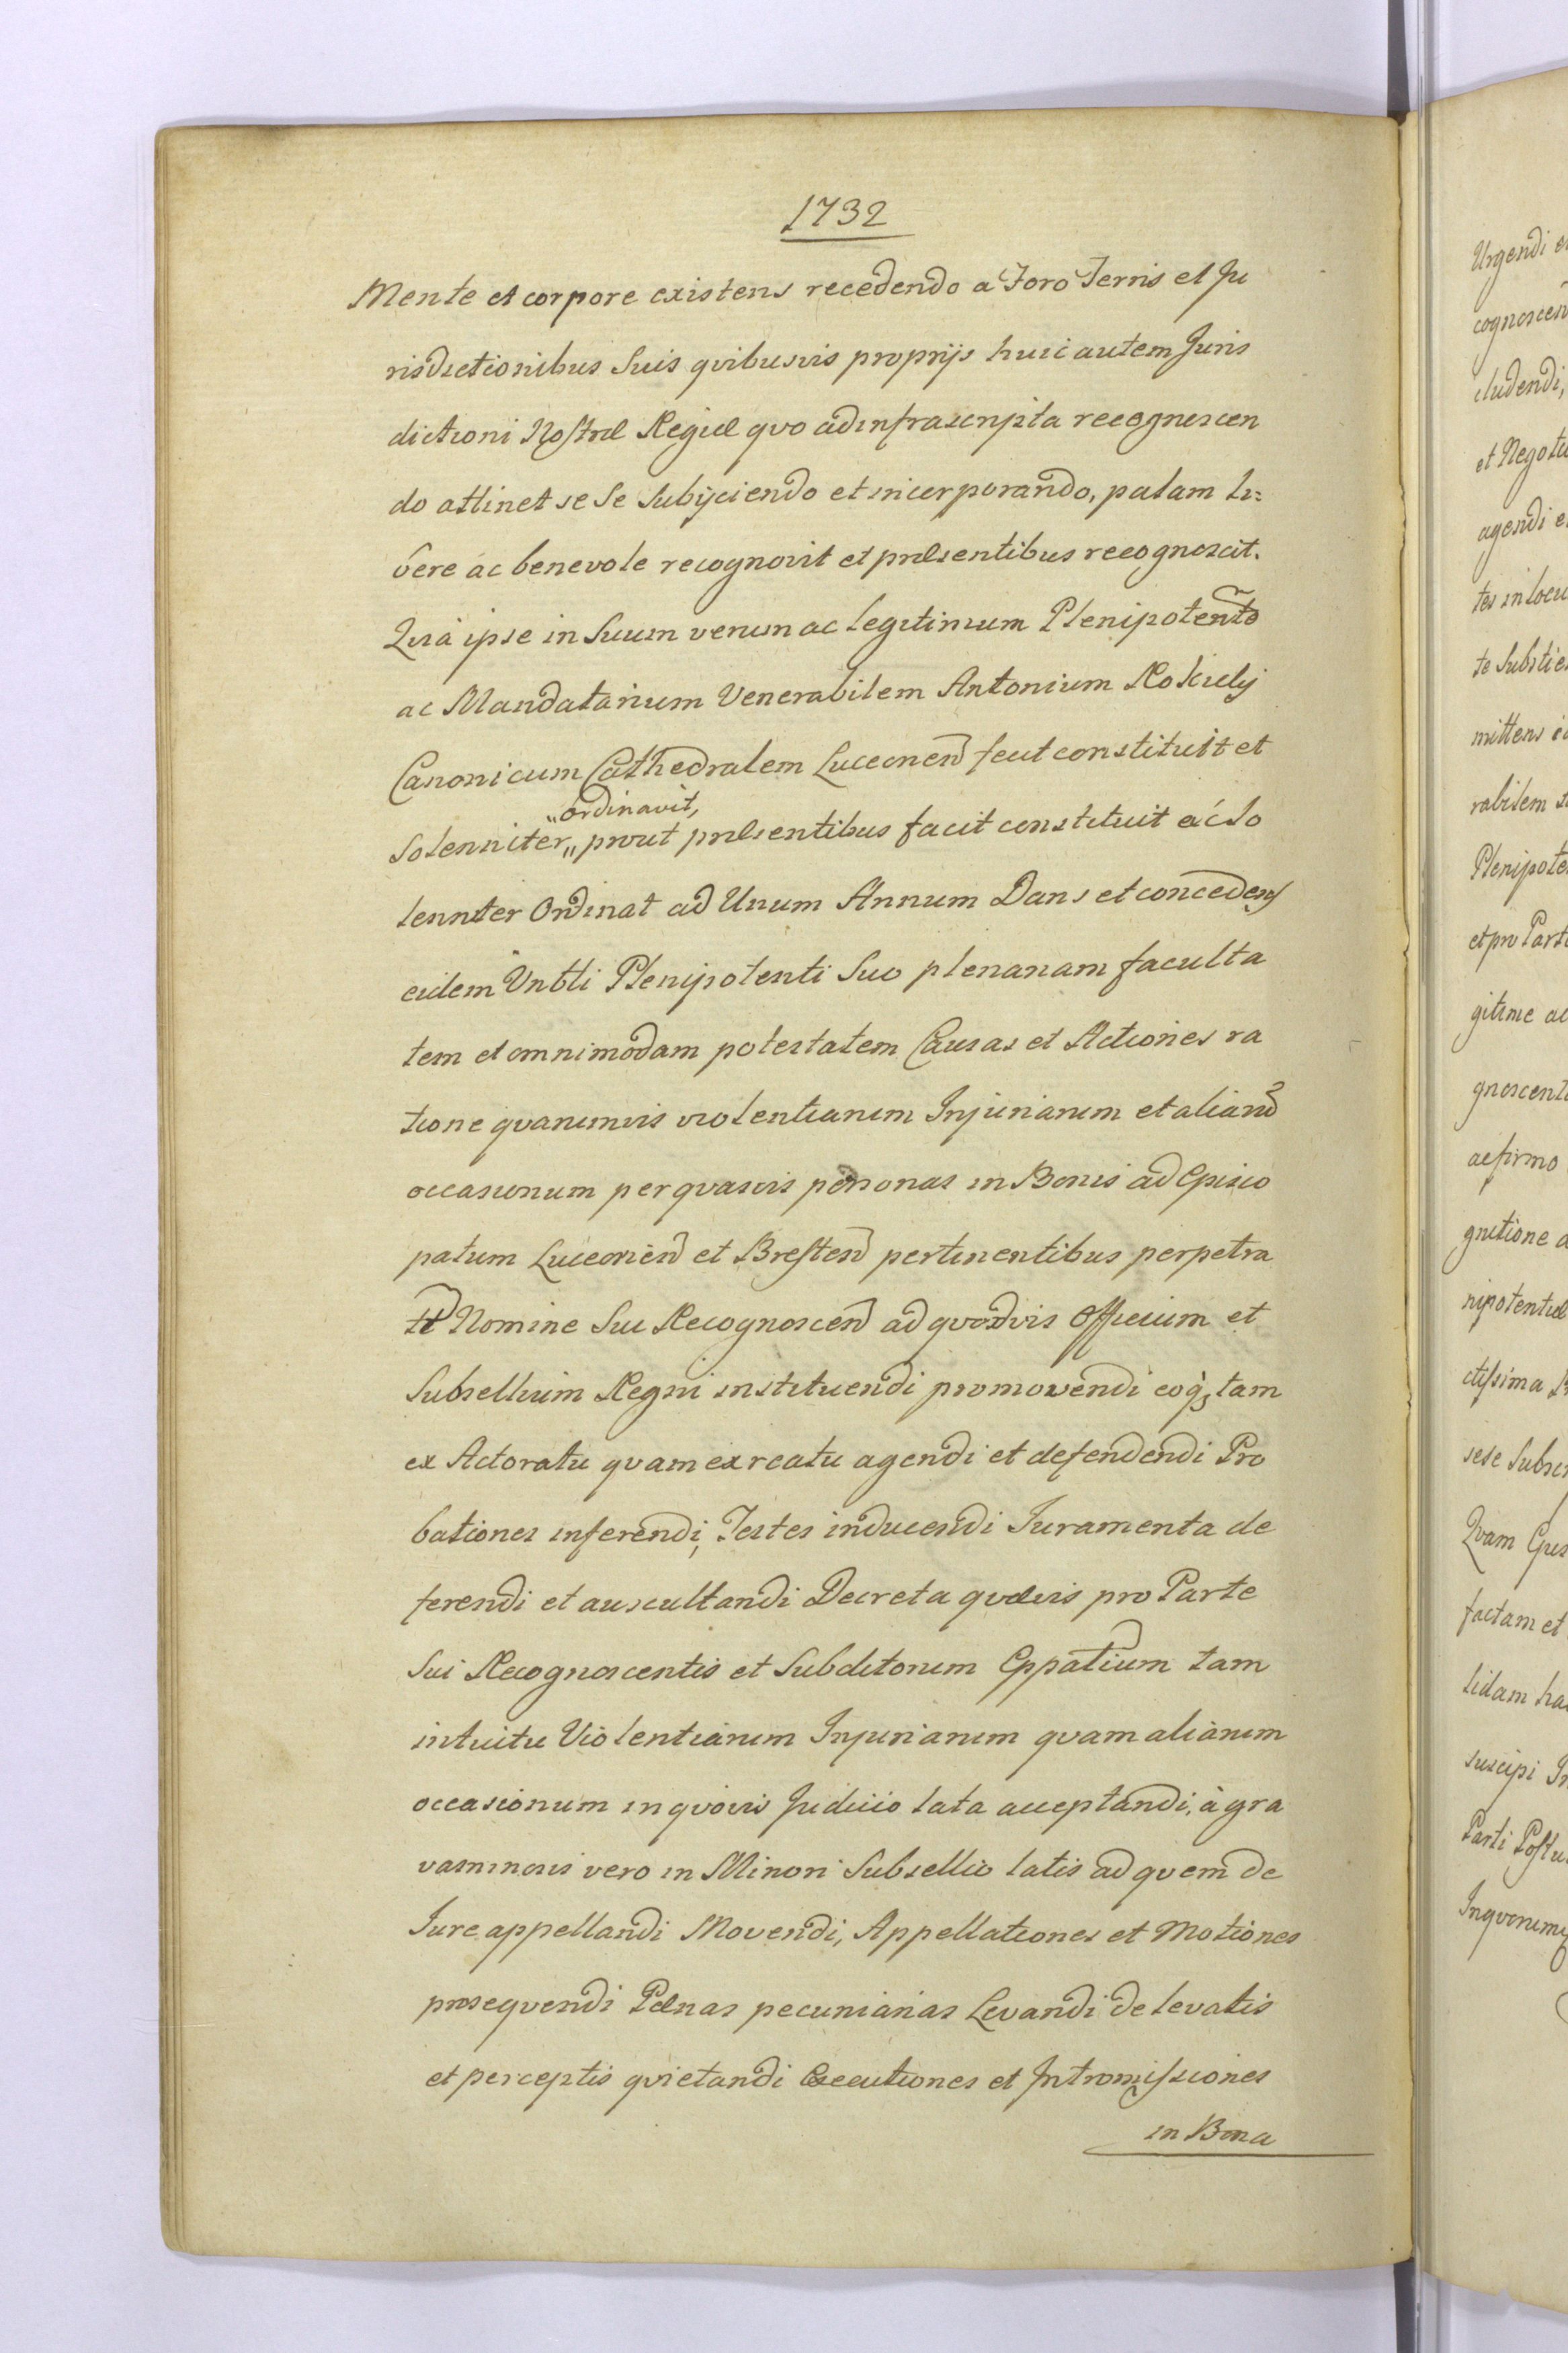 1732
Mente et corpore existens recedendo a Foro Terris et Ju
risdictionibus Suis qvibusvis proprijs huic autem Juris
dictioni Nostræ Regiæ qvo ad infrascripta recognoscen
do attinet se se Subijciendo et incorporando, palam li=
bere ac benevole recognovit et præsentibus recognoscit.
Qvia ipse in Suum verum ac legitimum Plenipotento
ac Mandatarium Venerabilem Antonium
Canonicum Cathedralem Luceorien fecit constituit et
"ordinavit,
Solenniter„ prout præsentibus facit constituit ac So
lenniter Ordinat ad Unum Annum Dans et concedens
eidem Vnbli Plenipotenti Suo plenariam faculta
tem et omnimodam potestatem Causas et Actiones ra
tione qvarumvis violentiarum Injuriarum et aliaru
occasionum per qvasvis personas in Bonis ad Episco
patum Luceorien et Bresten pertinentibus perpetra
tt Nomine Sui Recognoscen ad qvodvis Officium et
Subsellium Regni instituendi promovendi eoq₃ tam
ex Actoratu qvam ex reatu agendi et defendendi Pro
bationes inferendi, Testes inducendi Juramenta de
ferendi et auscultandi Decreta qvævis pro Parte
Sui Recognoscentis et Subditorum Eppatium tam
intuitu Violentiarum Injuriarum qvam aliarum
occasionum in qvovis Judicio lata acceptandi, à gra
vaminosis vero in Minori Subsellio latis ad qvem de
Jure appellandi Movendi, Appellationes et Motiones
proseqvendi Pænas pecuniarias Levandi de levatis
et perceptis qvietandi Executiones et Intromissiones
in Bona
Urgendi e
cognoscen
cludendi,
et Negotu
agendi e
tes in locu
te Substi
mittens
rabilem
Plenipote
et pro Part
gitime ac
gnoscent
ac firmo
gnitione a
nipotentiæ
ctissima
sese Subscr
Qvam
factam et
lidam ha
suscipi In
Parti Postu
Inqvorum